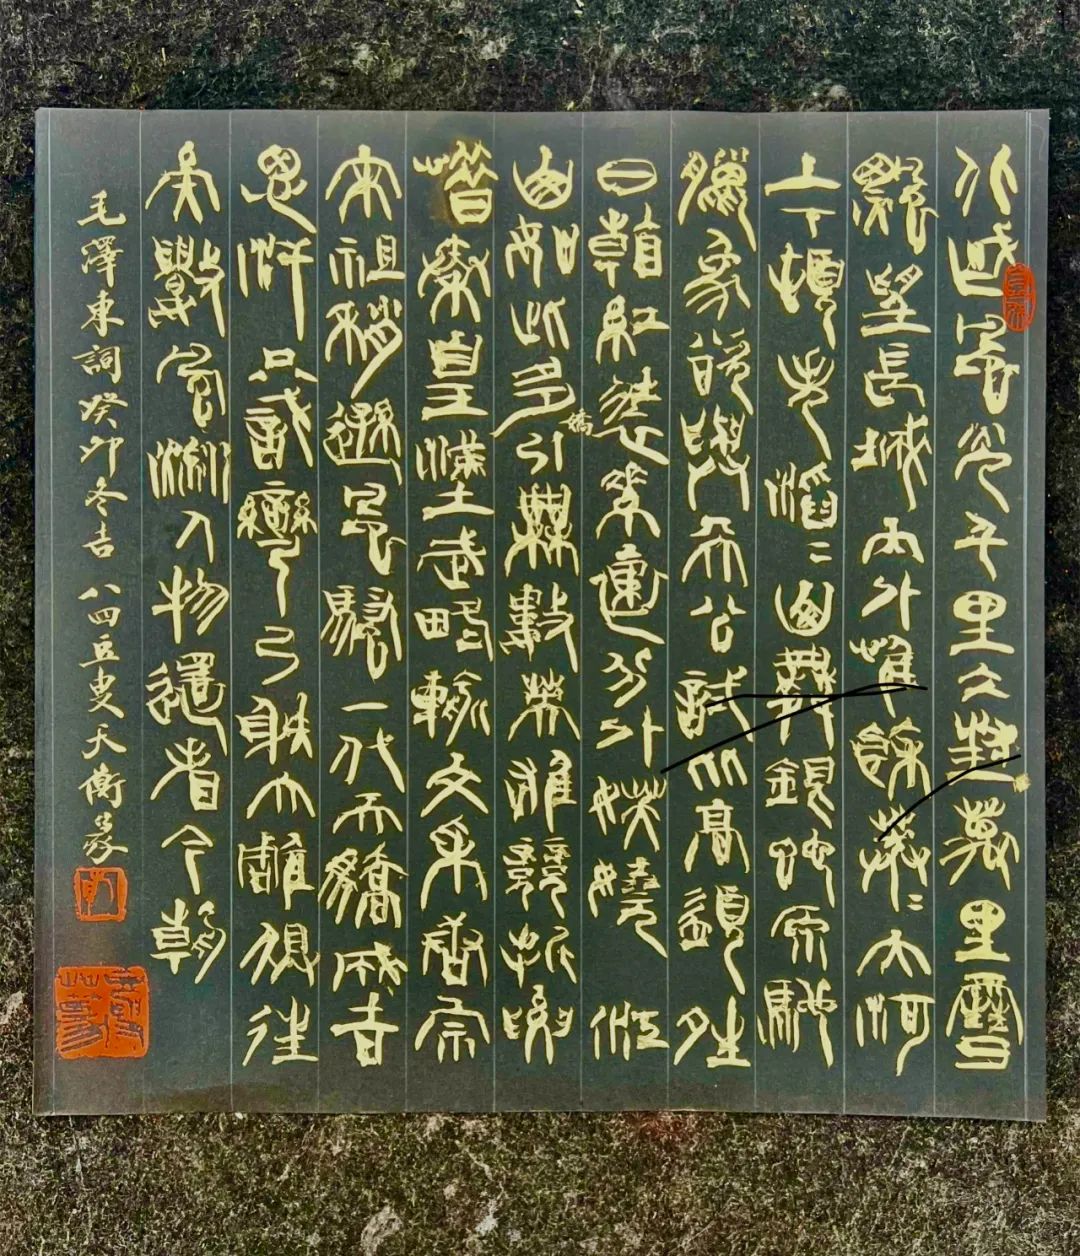 北國風光千里冰封萬里雪
飄望長城內外惟餘莽〻大河
上下頓失滔〻山舞銀蛇原馳
臘象欲與天公試比高須晴
日看紅裝素裹分外妖嬈江
山如此多嬌引無數英雄競折腰
惜秦皇漢武略輸文采唐宗
宋祖稍遜風騷一代天驕成吉
思汗只識彎弓射大雕俱往
矣數風流人物還看今朝
毛澤東詞癸卯冬吉八四豆叟天衡篆